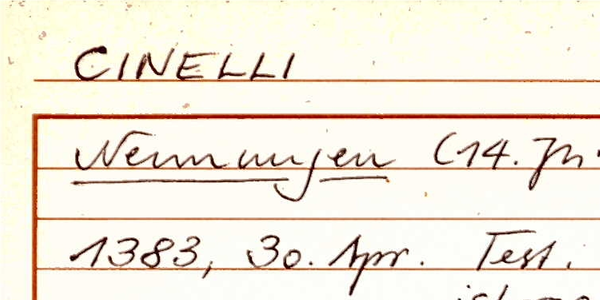 CINELLI
Nennungen (14. Jh.
1383, 30. Apr. Test.